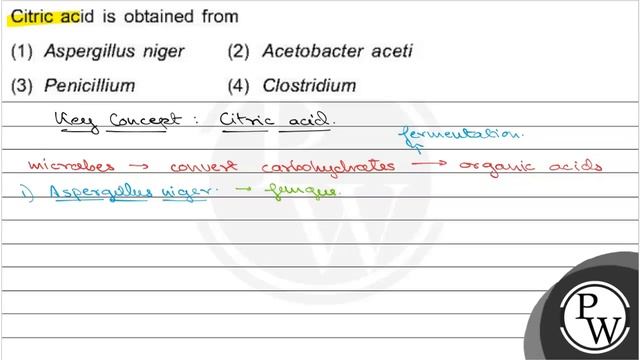 Citric acid is obtained from
(1) Aspergillus niger (2) Acetobacter aceti
(3) Penicillium (4) Clostridium
Key Concept : Citric acid.
fermentation.
microbes → convert carbohydrates → organic acids
i) Aspergillus niger. → fungus.
P
W